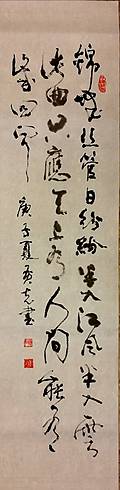 錦城絲管日紛紛半入江風半入雲
此曲只應天上有人間能有
幾回聞
庚子夏 書